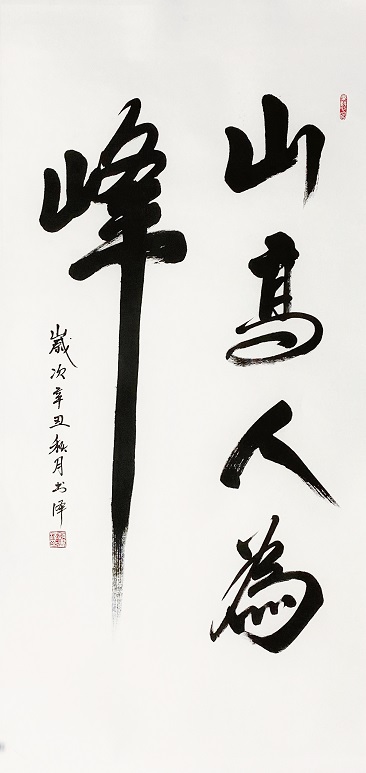 山高人為
峰
歲次辛丑秋月書澤